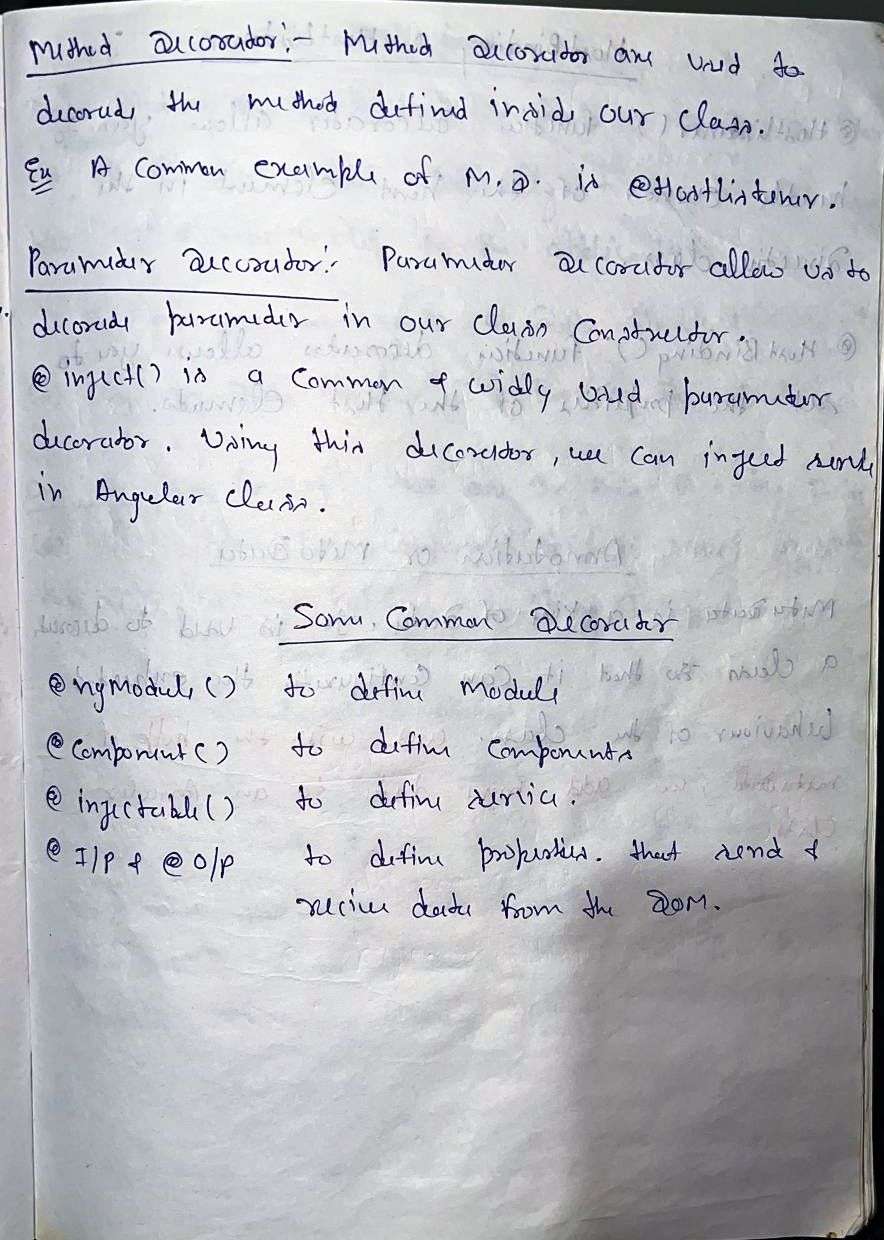 Method Decorator:- Method Decorator are used to
decorate the method defined inside our class.
Ex A Common example of M.D. is @Hostlistener.
Parameter Decorator:- Parameter Decorator allow us to
decorate parameter in our class Constructor.
@inject() is a Common & widly used parameter
decorator. Using this decorator, we can inject
in Angular class.
Some Common Decorator
@ngModule() to define module
@Component() to define Components
@injectable() to define service.
@I/P & @O/P to define properties. that send &
recive data from the DOM.